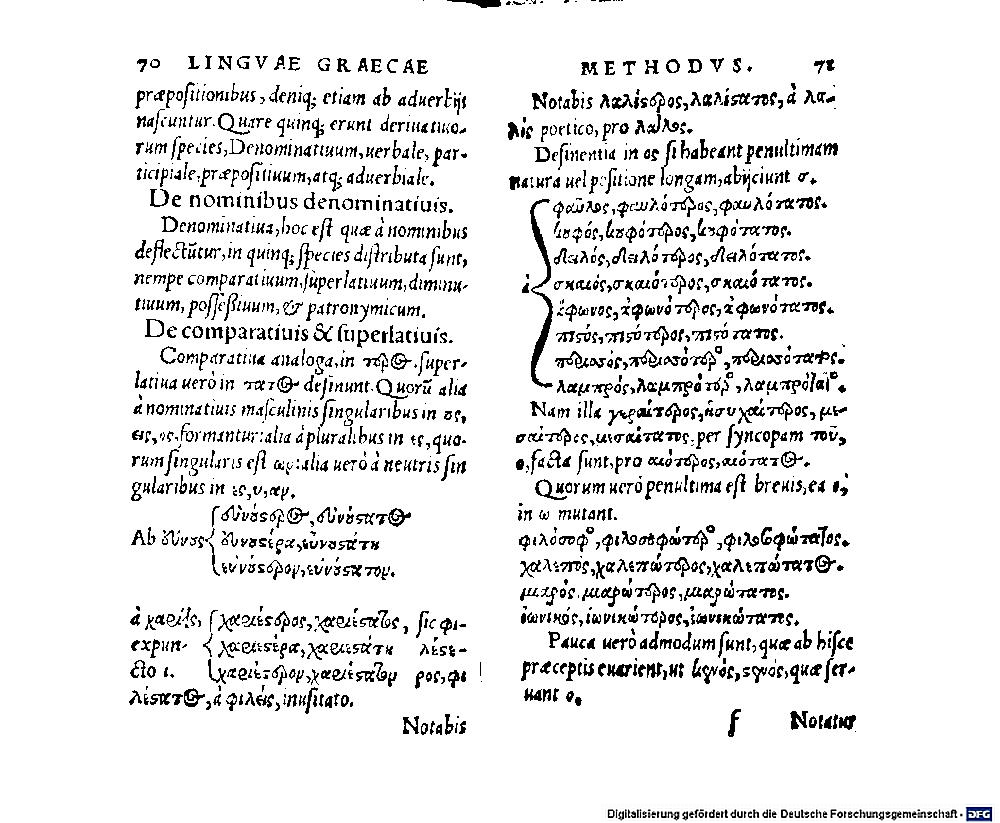 70 LINGVAE GRAECAE
præpositionibus, deniq; etiam ab aduerbijs
nascuntur. Quare quinq; erunt deriuatiuo-
rum species, Denominatiuum, uerbale, par-
ticipiale, præpositiuum, atq; aduerbiale.
De nominibus denominatiuis.
Denominatiua, hoc est quæ à nominibus
deflectũtur, in quinq; species distributa sunt,
nempe comparatiuum, superlatiuum, diminu-
tiuum, possessiuum, & patronymicum.
De comparatiuis & superlatiuis.
Comparatiua analoga, in τερος. super-
latiua uerò in τατος desinunt. Quorũ alia
à nominatiuis masculinis singularibus in ος,
εις, υς, formantur: alia à pluralibus in ες, quo-
rum singularis est ων: alia uerò à neutris sin
gularibus in ες, υ, αν.
εὐνούστερος, εὐνούστατος
Ab εὔνους εὐνουστέρα, εὐνουστάτη
εὐνούστερον, εὐνούστατον.
à χαρίεις, χαριέστερος, χαριέστατος, sic φι-
expun- χαριεστέρα, χαριεστάτη λέστε-
cto ι. χαριέστερον, χαριέστατον ρος, φι
λέστατος, à φιλεὶς, inusitato.
Notabis
METHODVS. 71
Notabis λαλίστερος, λαλίστατος, à λα-
λὶς poetico, pro λάλος.
Desinentia in ος si habeant penultimam
natura uel positione longam, abijciunt σ.
φαῦλος, φαυλότερος, φαυλότατος.
κυφός, κυφότερος, κυφότατος.
δειλός, δειλότερος, δειλότατος.
σκαιός, σκαιότερος, σκαιότατος.
ἄφωνος, ἀφωνότερος, ἀφωνότατος.
πιστός, πιστότερος, πιστότατος.
λαμπρός, λαμπρότερος, λαμπρότατος.
Nam illa γεραίτερος, ἡσυχαίτερος, με-
σαίτερος, μεσαίτατος, per syncopam τοῦ,
ο, facta sunt, pro αιότερος, αιότατος.
Quorum uerò penultima est breuis, ea ο,
in ω mutant.
φιλόσοφος, φιλοσοφώτερος, φιλοσοφώτατος.
χαλεπός, χαλεπώτερος, χαλεπώτατος.
μιαρός, μιαρώτερος, μιαρώτατος.
ἰωνικός, ἰωνικώτερος, ἰωνικώτατος.
Pauca uerò admodum sunt, quæ ab hisce
præceptis euarient, ut κενός, στενός, quæ ser-
uant ο.
f Notatur
Digitalisierung gefördert durch die Deutsche Forschungsgemeinschaft - DFG